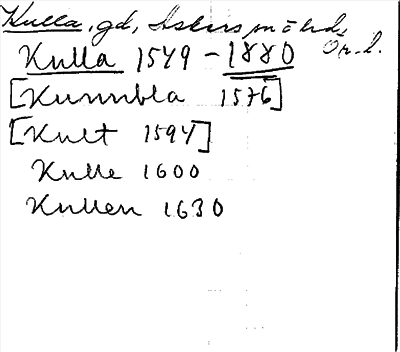 Kulla, gd, Askers sn o hd,
Ör. l.
Kulla 1549 - 1880
[Kumbla 1576]
[Kult 1594]
Kulle 1600
Kullen 1630